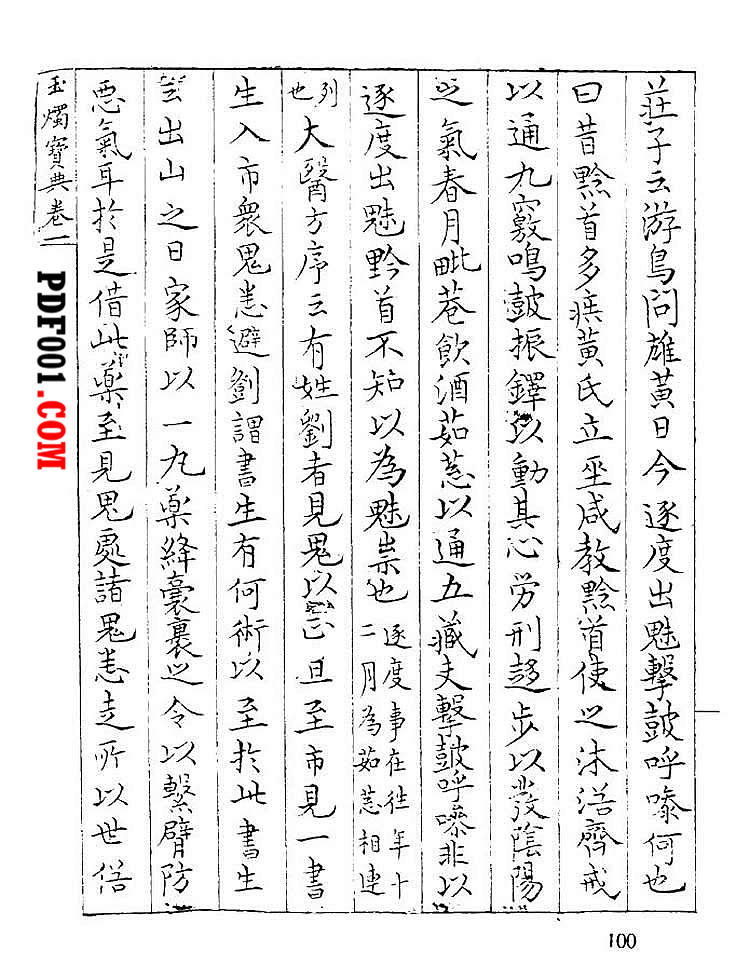 莊子云游鳥問雄黃曰今逐度出魅擊鼓呼噪何也
曰昔黔首多疾黃氏立巫咸教黔首使之沐浴齊戒
以通九竅鳴鼓振鐸以動其心勞刑趍步以發陰陽
之氣春月毗巷飲酒茹葱以通五藏夫擊鼓呼噪非以
逐度出魅黔首不知以為魅祟也逐度事在往年十
二月為茹葱相連
列
也大醫方序云有姓劉者見鬼以正旦至市見一書
生入市衆鬼恙避劉謂書生有何術以至於此書生
言出山之日家師以一丸藥絳囊裹之令以繫臂防
惡氣耳於是借此藥至見鬼處諸鬼恙走所以世俗
玉燭寶典卷一
PDF001.COM
100